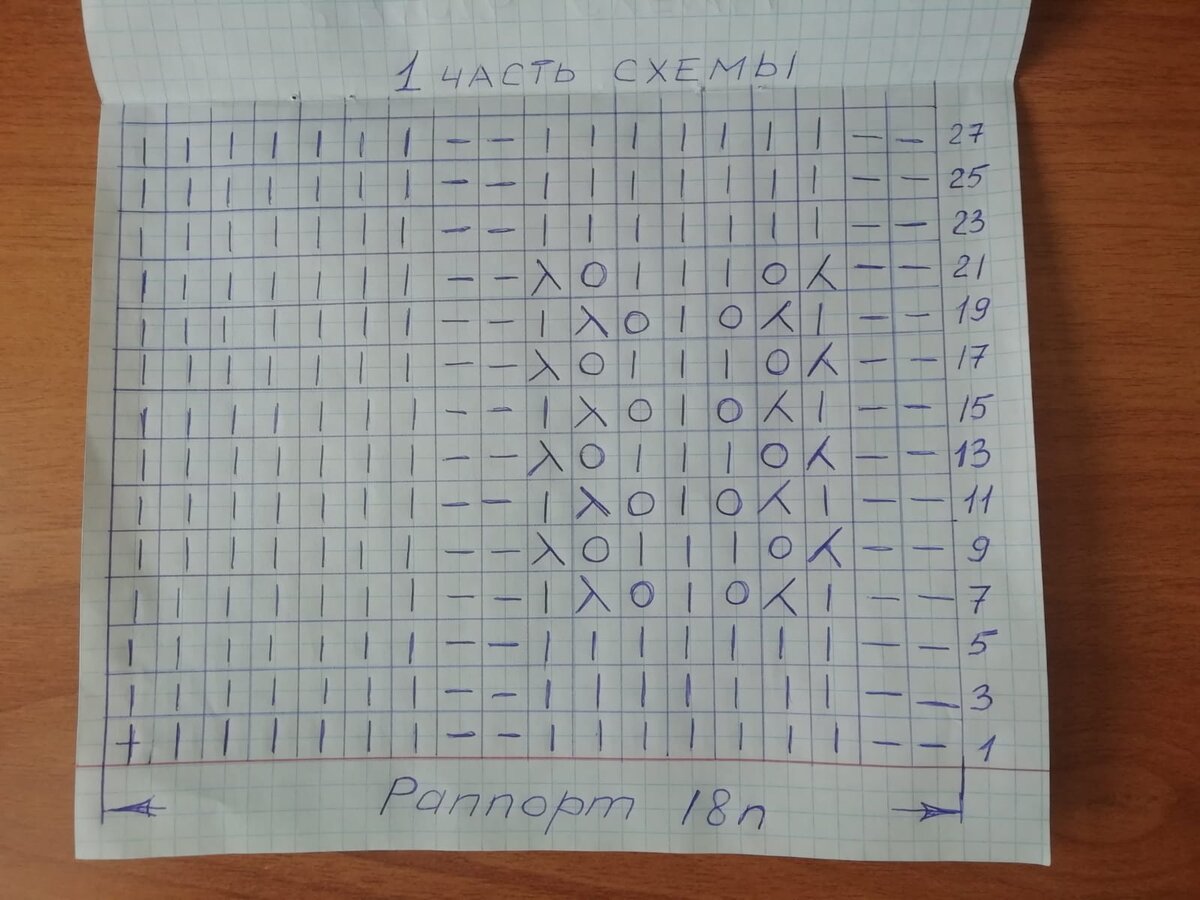 1 ЧАСТЬ СХЕМЫ
| | | | | | | — — | | | | | | | — — 27
| | | | | | | — — | | | | | | | — — 25
| | | | | | | — — | | | | | | | — — 23
| | | | | | | — — λ O | | | O ⅄ — — 21
| | | | | | | — — | λ O | O ⅄ | — — 19
| | | | | | | — — λ O | | | O ⅄ — — 17
| | | | | | | — — | λ O | O ⅄ | — — 15
| | | | | | | — — λ O | | | O ⅄ — — 13
| | | | | | | — — | λ O | O ⅄ | — — 11
| | | | | | | — — λ O | | | O ⅄ — — 9
| | | | | | | — — | λ O | O ⅄ | — — 7
| | | | | | | — — | | | | | | | — — 5
| | | | | | | — — | | | | | | | — — 3
+ | | | | | | — — | | | | | | | — — 1
Раппорт 18п